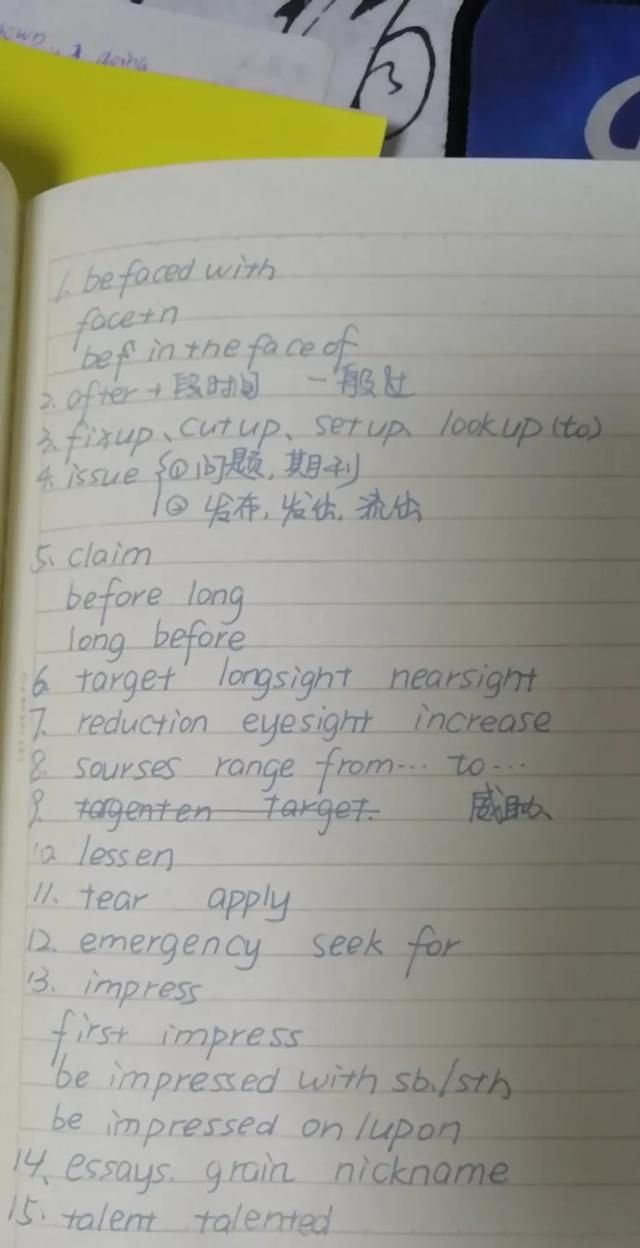 down
doing
1. be faced with
face+n
bef in the face of
2. after + 段时间 一般过
3. fix up、cut up、set up、look up (to)
4. issue { ① 问题, 期刊
② 发布, 发出, 流出
5. claim
before long
long before
6. target longsight nearsight
7. reduction eyesight increase
8. sourses range from... to...
9. target.
10. lessen
11. tear apply
12. emergency seek for
13. impress
first impress
be impressed with sb./sth
be impressed on/upon
14. essays. grain nickname
15. talent talented